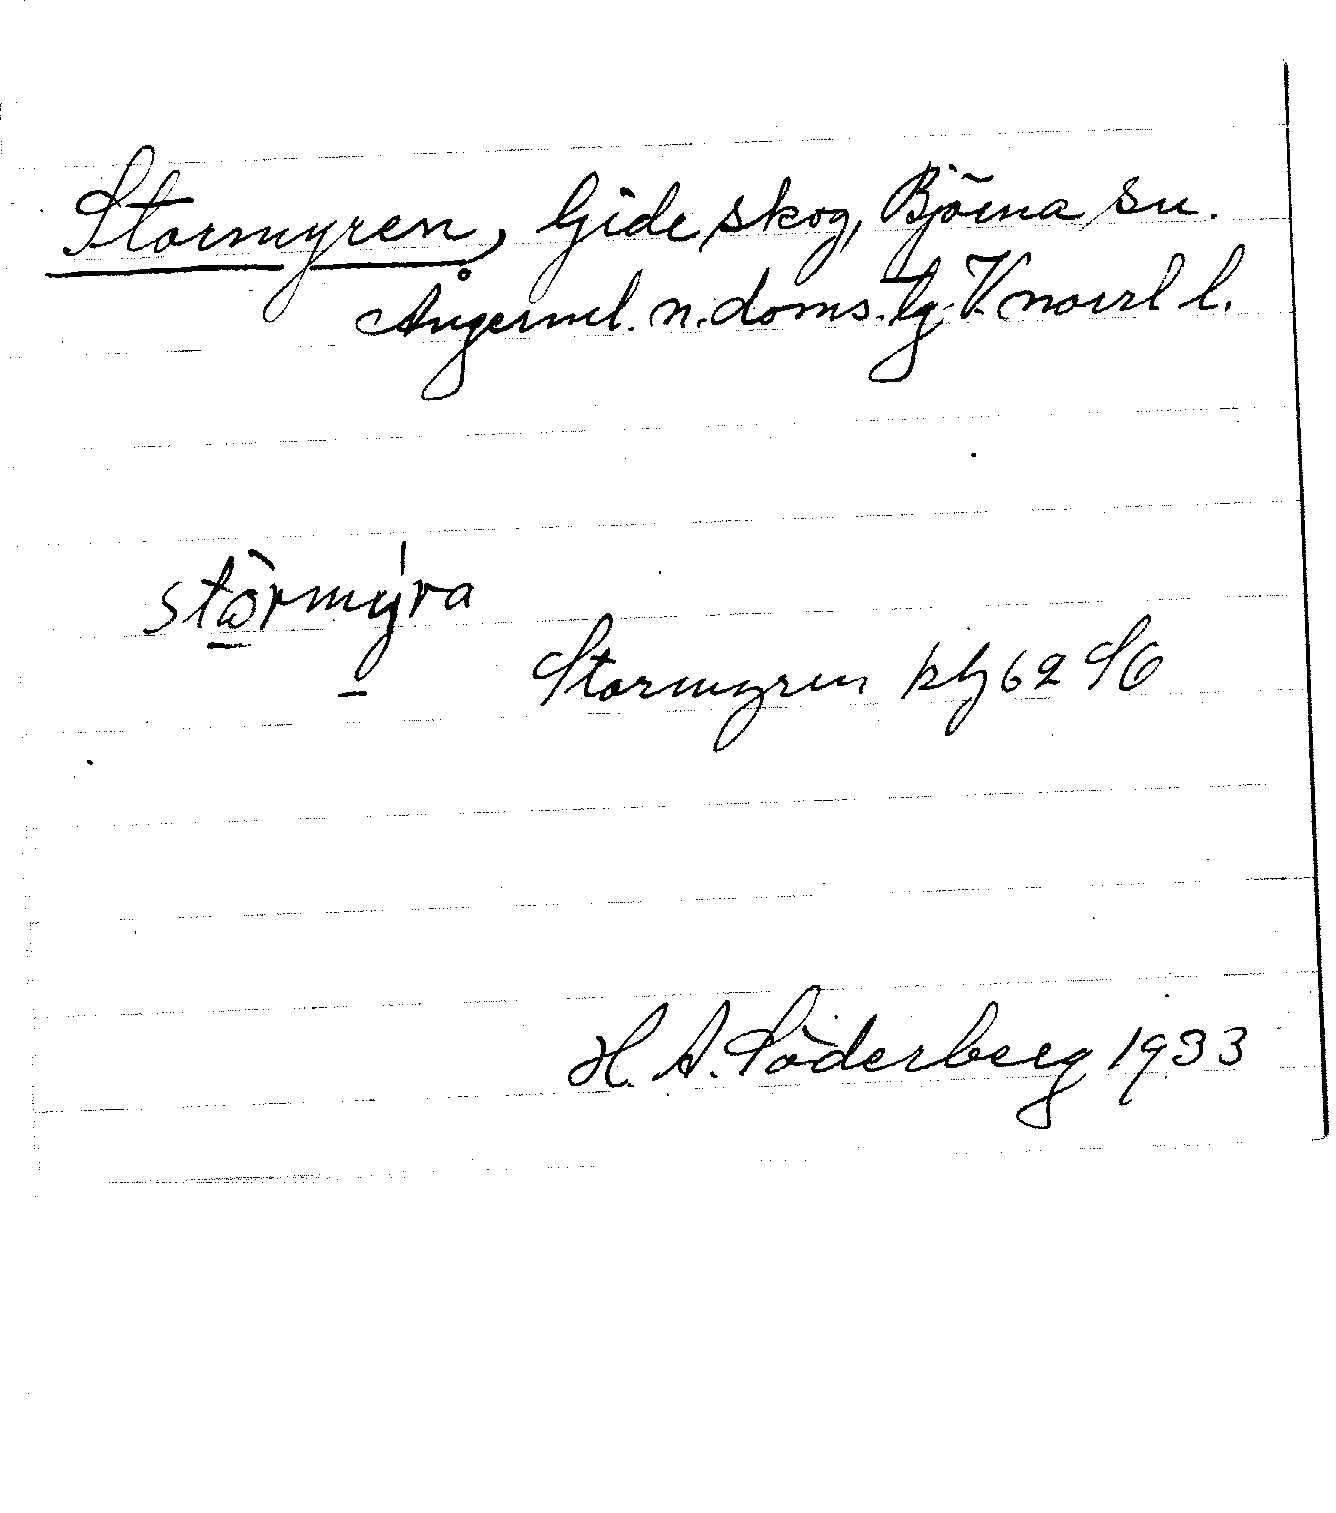 Stormyren, Gideåskog, Björna sn.
Ångerml. n. doms. lg. V. norrl l.
stòrmýra
Stormyren kbl 62 SO
H. A. Söderberg 1933